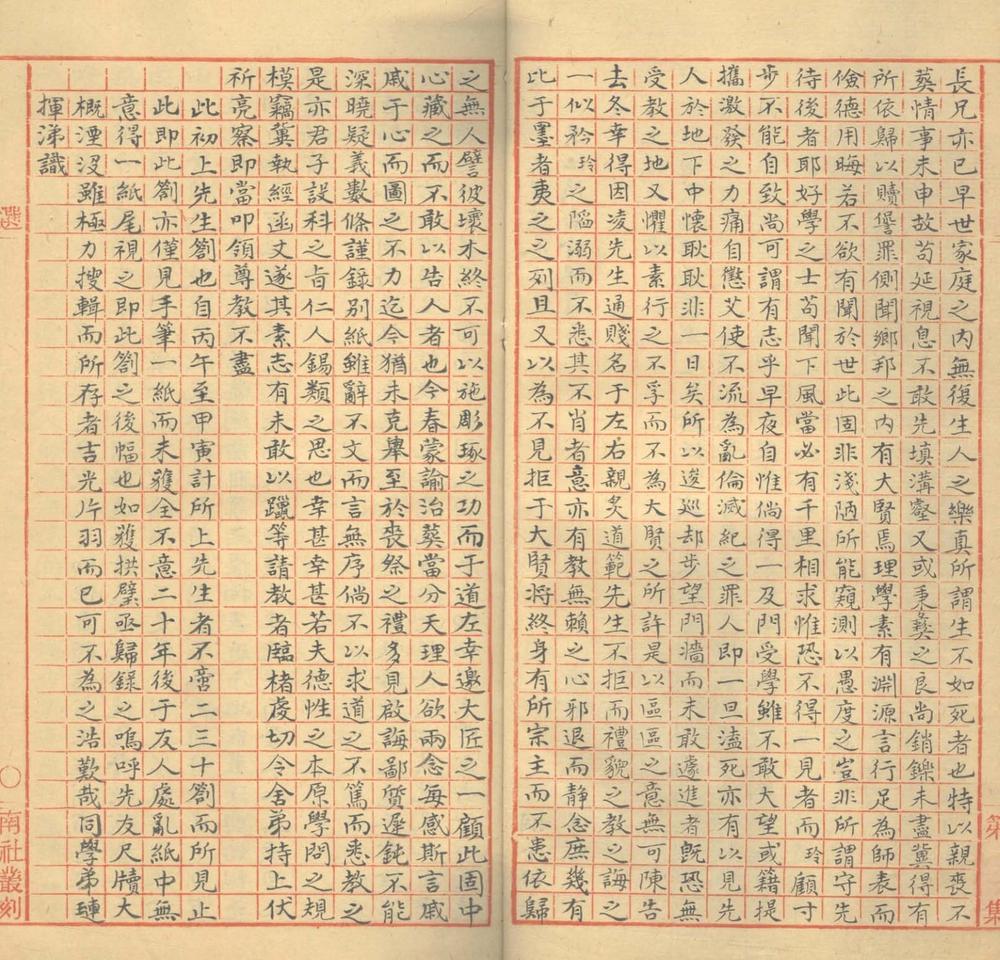 長兄亦已早世家庭之內無復生人之樂真所謂生不如死者也特以親喪不
葵情事未申故苟延視息不敢先填溝壑又或秉彝之良尚銷鑠未盡冀得有
所依歸以贖諐罪側聞鄉邦之內有大賢焉理學素有淵源言行足為師表而
儉德用晦若不欲有聞於世此固非淺陋所能窺測以愚度之豈非所謂守先
待後者耶好學之士苟聞下風當必有千里相求惟恐不得一見者而玲顧寸
步不能自致尚可謂有志乎早夜自惟倘得一及門受學雖不敢大望或籍提
攜激發之力痛自懲艾使不流為亂倫滅紀之罪人即一旦溘死亦有以見先
人於地下中懷耿耿非一日矣所以逡巡却步望門牆而未敢遽進者既恐無
受教之地又懼以素行之不孚而不為大賢之所許是以區區之意無可陳告
去冬幸得因凌先生通賤名于左右親炙道範先生不拒而禮貌之教之誨之
一似矜玲之陷溺而不悉其不肖者意亦有教無賴之心邪退而靜念庶幾有
比于墨者夷之之列且又以為不見拒于大賢將終身有所宗主而不患依歸
之無人譬彼壞木終不可以施彫琢之功而于道左幸邀大匠之一顧此固中
心藏之而不敢以告人者也今春蒙諭治葵當分天理人欲兩念每感斯言戚
戚于心而圖之不力迄今猶未克舉至於喪祭之禮多見啟誨鄙質遲鈍不能
深曉疑義數條謹錄別紙雖辭不文而言無序倘不以求道之不篤而悉教之
是亦君子設科之旨仁人錫類之思也幸甚幸甚若夫德性之本原學問之規
模竊冀執經函丈遂其素志有未敢以躐等請教者臨楮虔切令舍弟持上伏
祈亮察即當叩領尊教不盡
此初上先生劄也自丙午至甲寅計所上先生者不啻二三十劄而所見止
此即此劄亦僅見手筆一紙而未獲全不意二十年後于友人處亂紙中無
意得一紙尾視之即此劄之後幅也如獲拱璧亟歸錄之嗚呼先友尺牘大
概湮沒雖極力搜輯而所存者吉光片羽而已可不為之浩歎哉同學弟璉
揮涕識
第 集
選 〇 南社叢刻